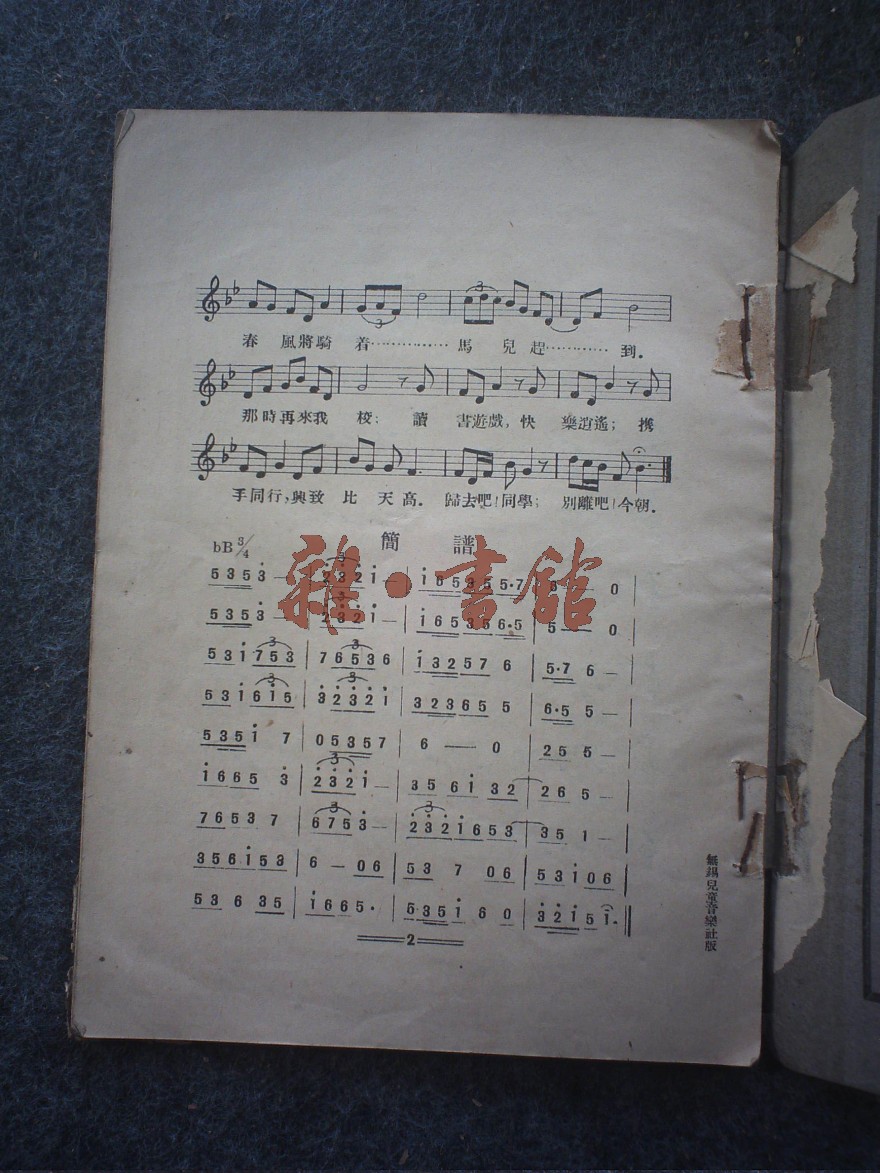 春風將騎着…………馬兒趕…………到.
那時再來我校; 讀書遊戲, 快樂逍遙; 携
手同行, 興致比天高. 歸去吧! 同學; 別離吧! 今朝.
簡譜
bB 3/4
雜·書館
5 3 5 3 — | 2 3 2 1 — | 1 6 5 3 5 5·7 | 6 — 0 |
5 3 5 3 — | 2 3 2 1 — | 1 6 5 3 5 6·5 | 5 — 0 |
5 3 1 7 5 3 | 7 6 5 3 6 | 1 3 2 5 7 6 | 5·7 6 — |
5 3 1 6 1 5 | 3 2 3 2 1 | 3 2 3 6 5 5 | 6·5 5 — |
5 3 5 1 7 | 0 5 3 5 7 | 6 — 0 | 2 5 5 — |
1 6 6 5 3 | 2 3 2 1 — | 3 5 6 1 3 2 | 2 6 5 — |
7 6 5 3 7 | 6 7 5 3 — | 2 3 2 1 6 5 3 | 3 5 1 — |
3 5 6 1 5 3 | 6 — 0 6 | 5 3 7 0 6 | 5 3 1 0 6 |
5 3 6 3 5 | 1 6 6 5· | 5 3 5 1 6 0 | 3 2 1 5 1· ||
2
無錫兒童音樂社版